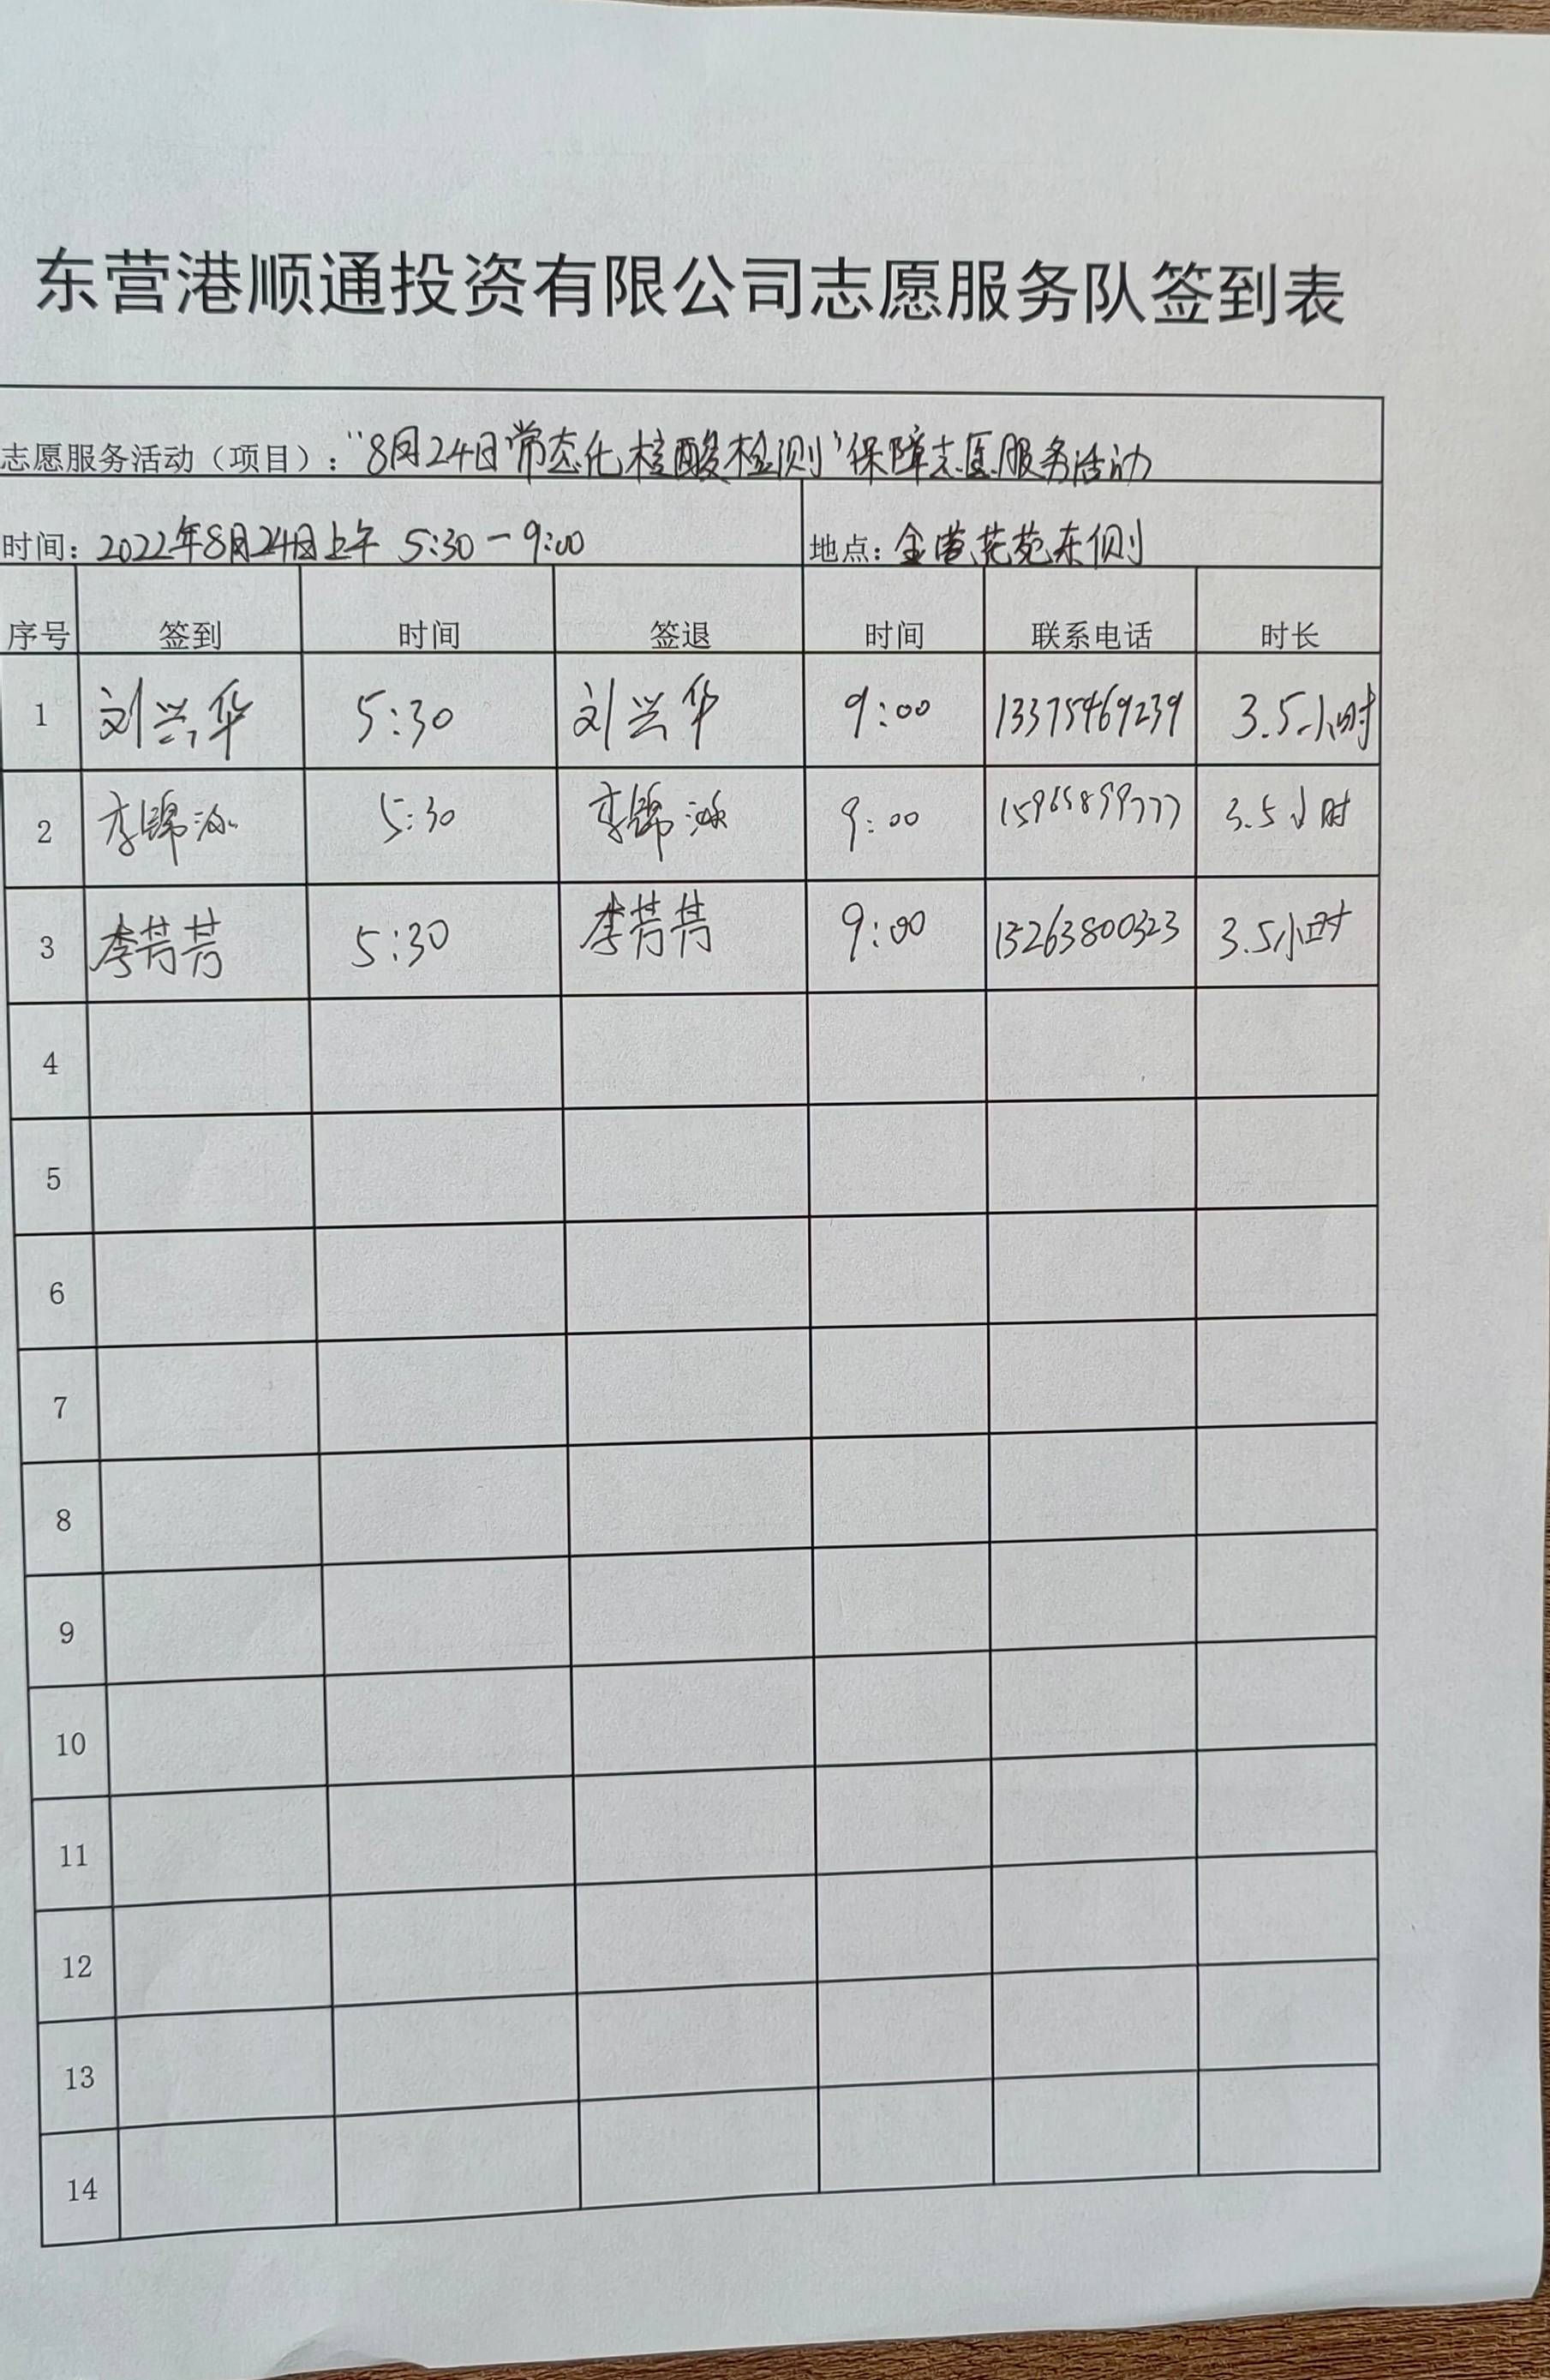 东营港顺通投资有限公司志愿服务队签到表
志愿服务活动（项目）：“8月24日‘常态化核酸检测’保障志愿服务活动
时间：2022年8月24日上午 5:30-9:00 地点：金港花苑东侧
序号 签到 时间 签退 时间 联系电话 时长
1 刘兴华 5:30 刘兴华 9:00 13375469239 3.5小时
2 李锦泳 5:30 李锦泳 9:00 15965899777 3.5小时
3 李芳芳 5:30 李芳芳 9:00 15263800323 3.5小时
4
5
6
7
8
9
10
11
12
13
14